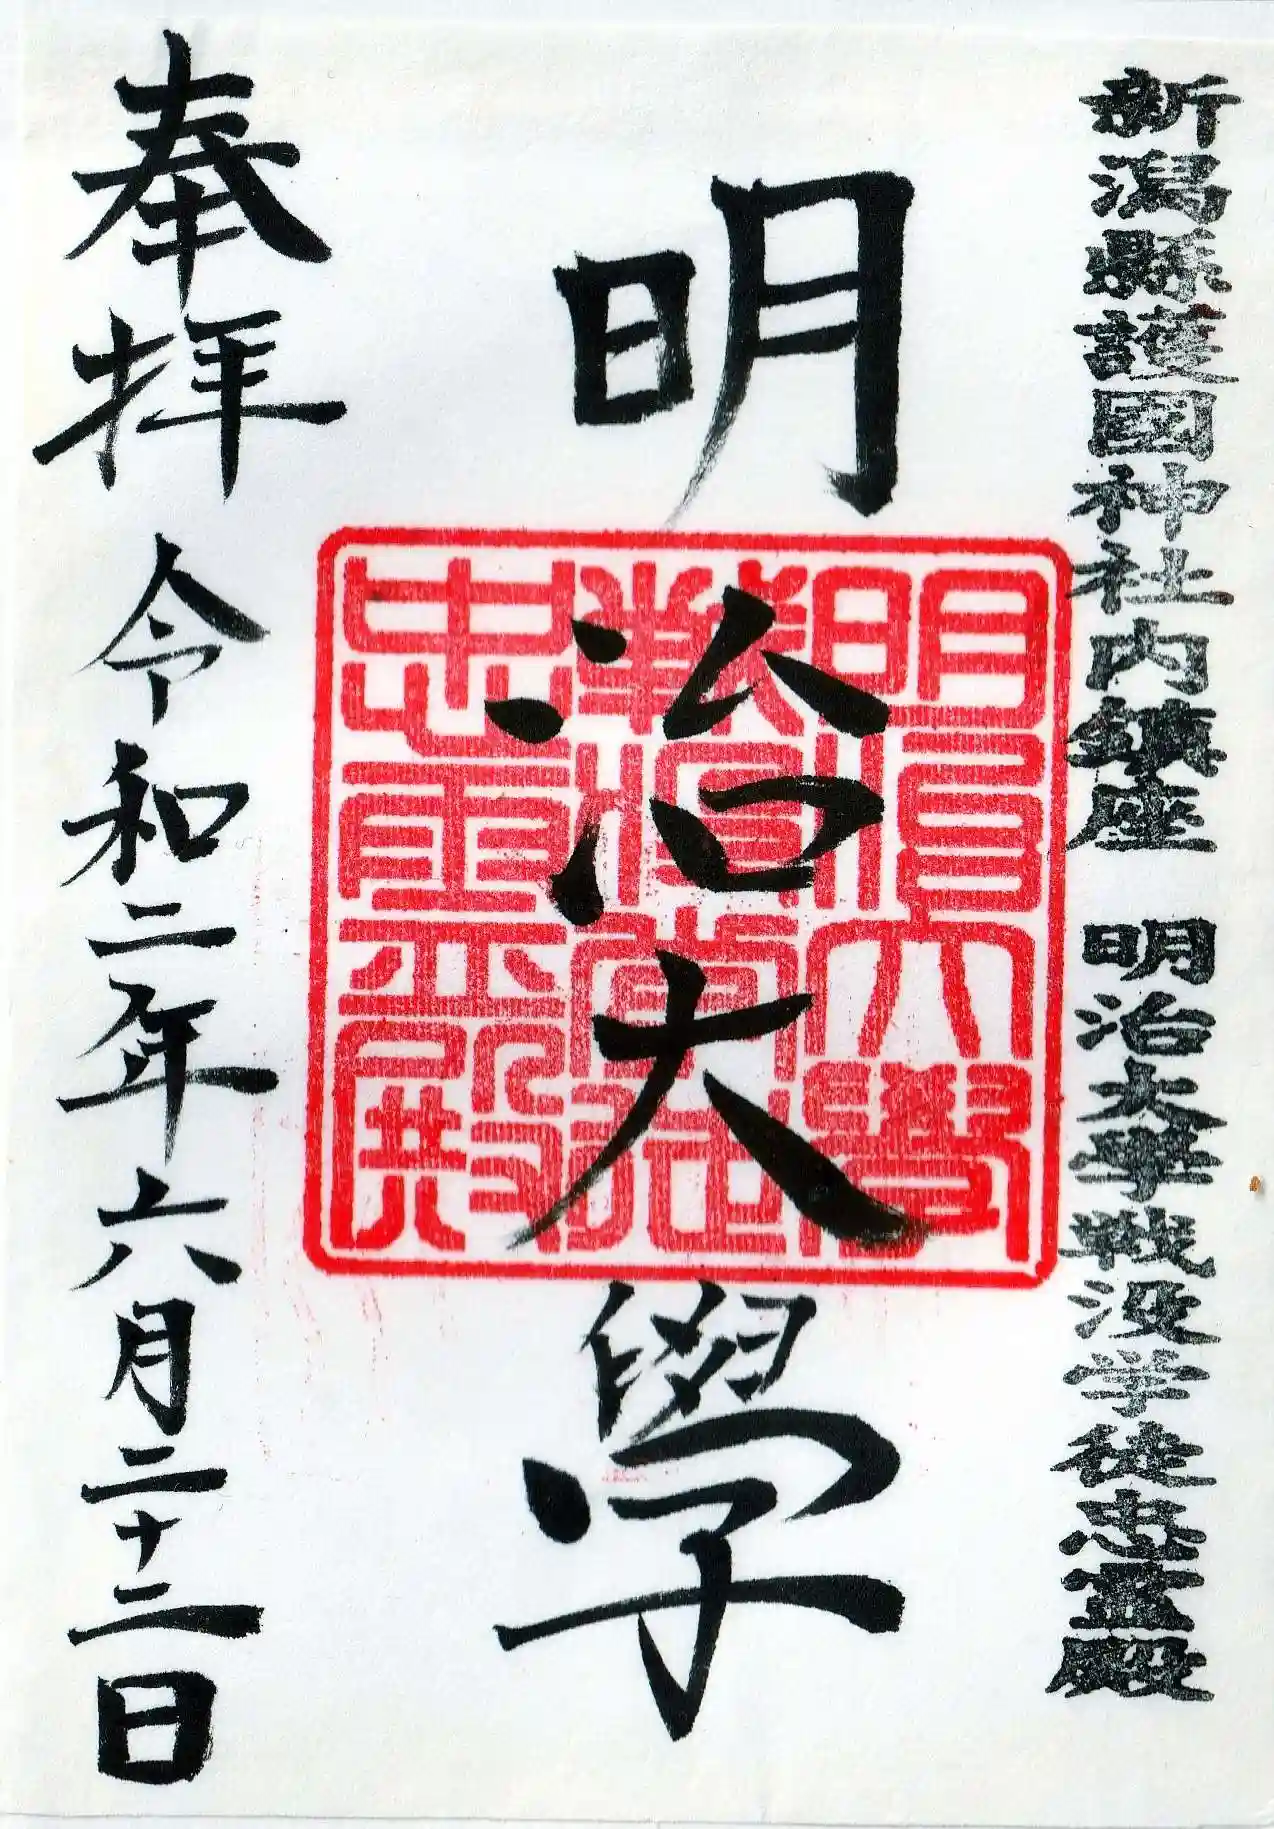 新潟縣護國神社内鎮座 明治大学戦没学徒忠霊殿
明治大學
明治大學
戦没学徒
忠霊殿
奉拝 令和二年六月二十二日